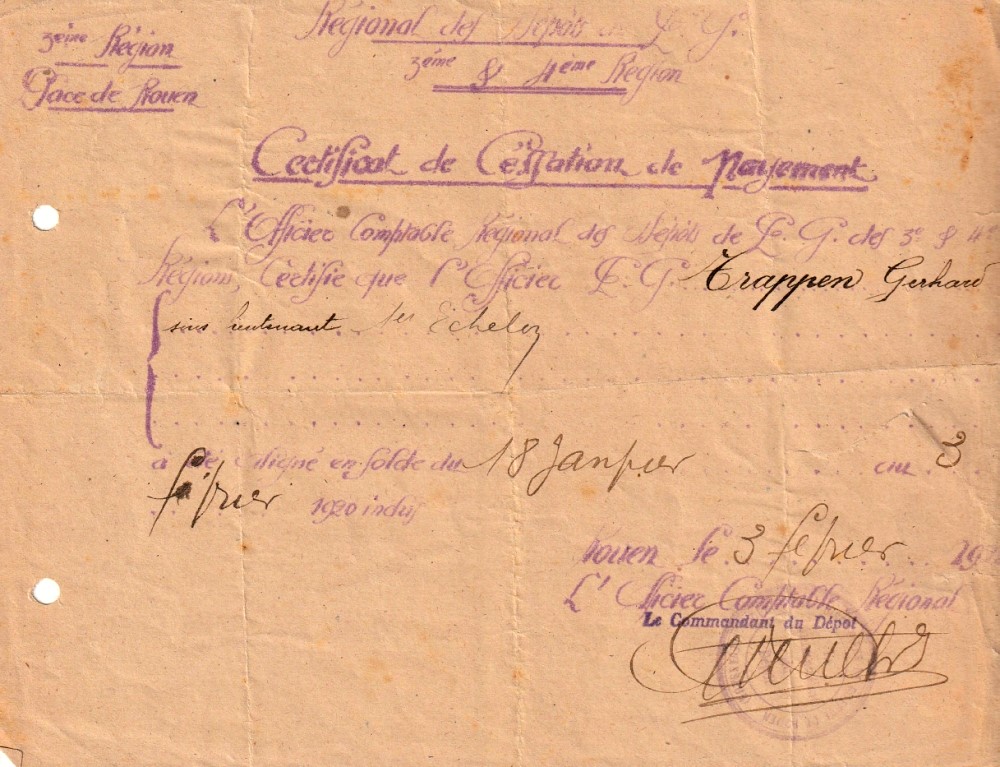 3ème Région
Place de Rouen
Régional des Dépôts de P. G.
3ème & 4ème Région
Certificat de Cessation de Payement
L'Officier Comptable Régional des Dépôts de P. G. des 3e & 4e
Régions, Certifie que l'Officier P. G. Trappen Gerhard
sous lieutenant 1er Echelon
a été aligné en solde du 18 Janvier au 3
février 1920 inclus
Rouen le 3 février 192
L'Officier Comptable Régional
Le Commandant du Dépot